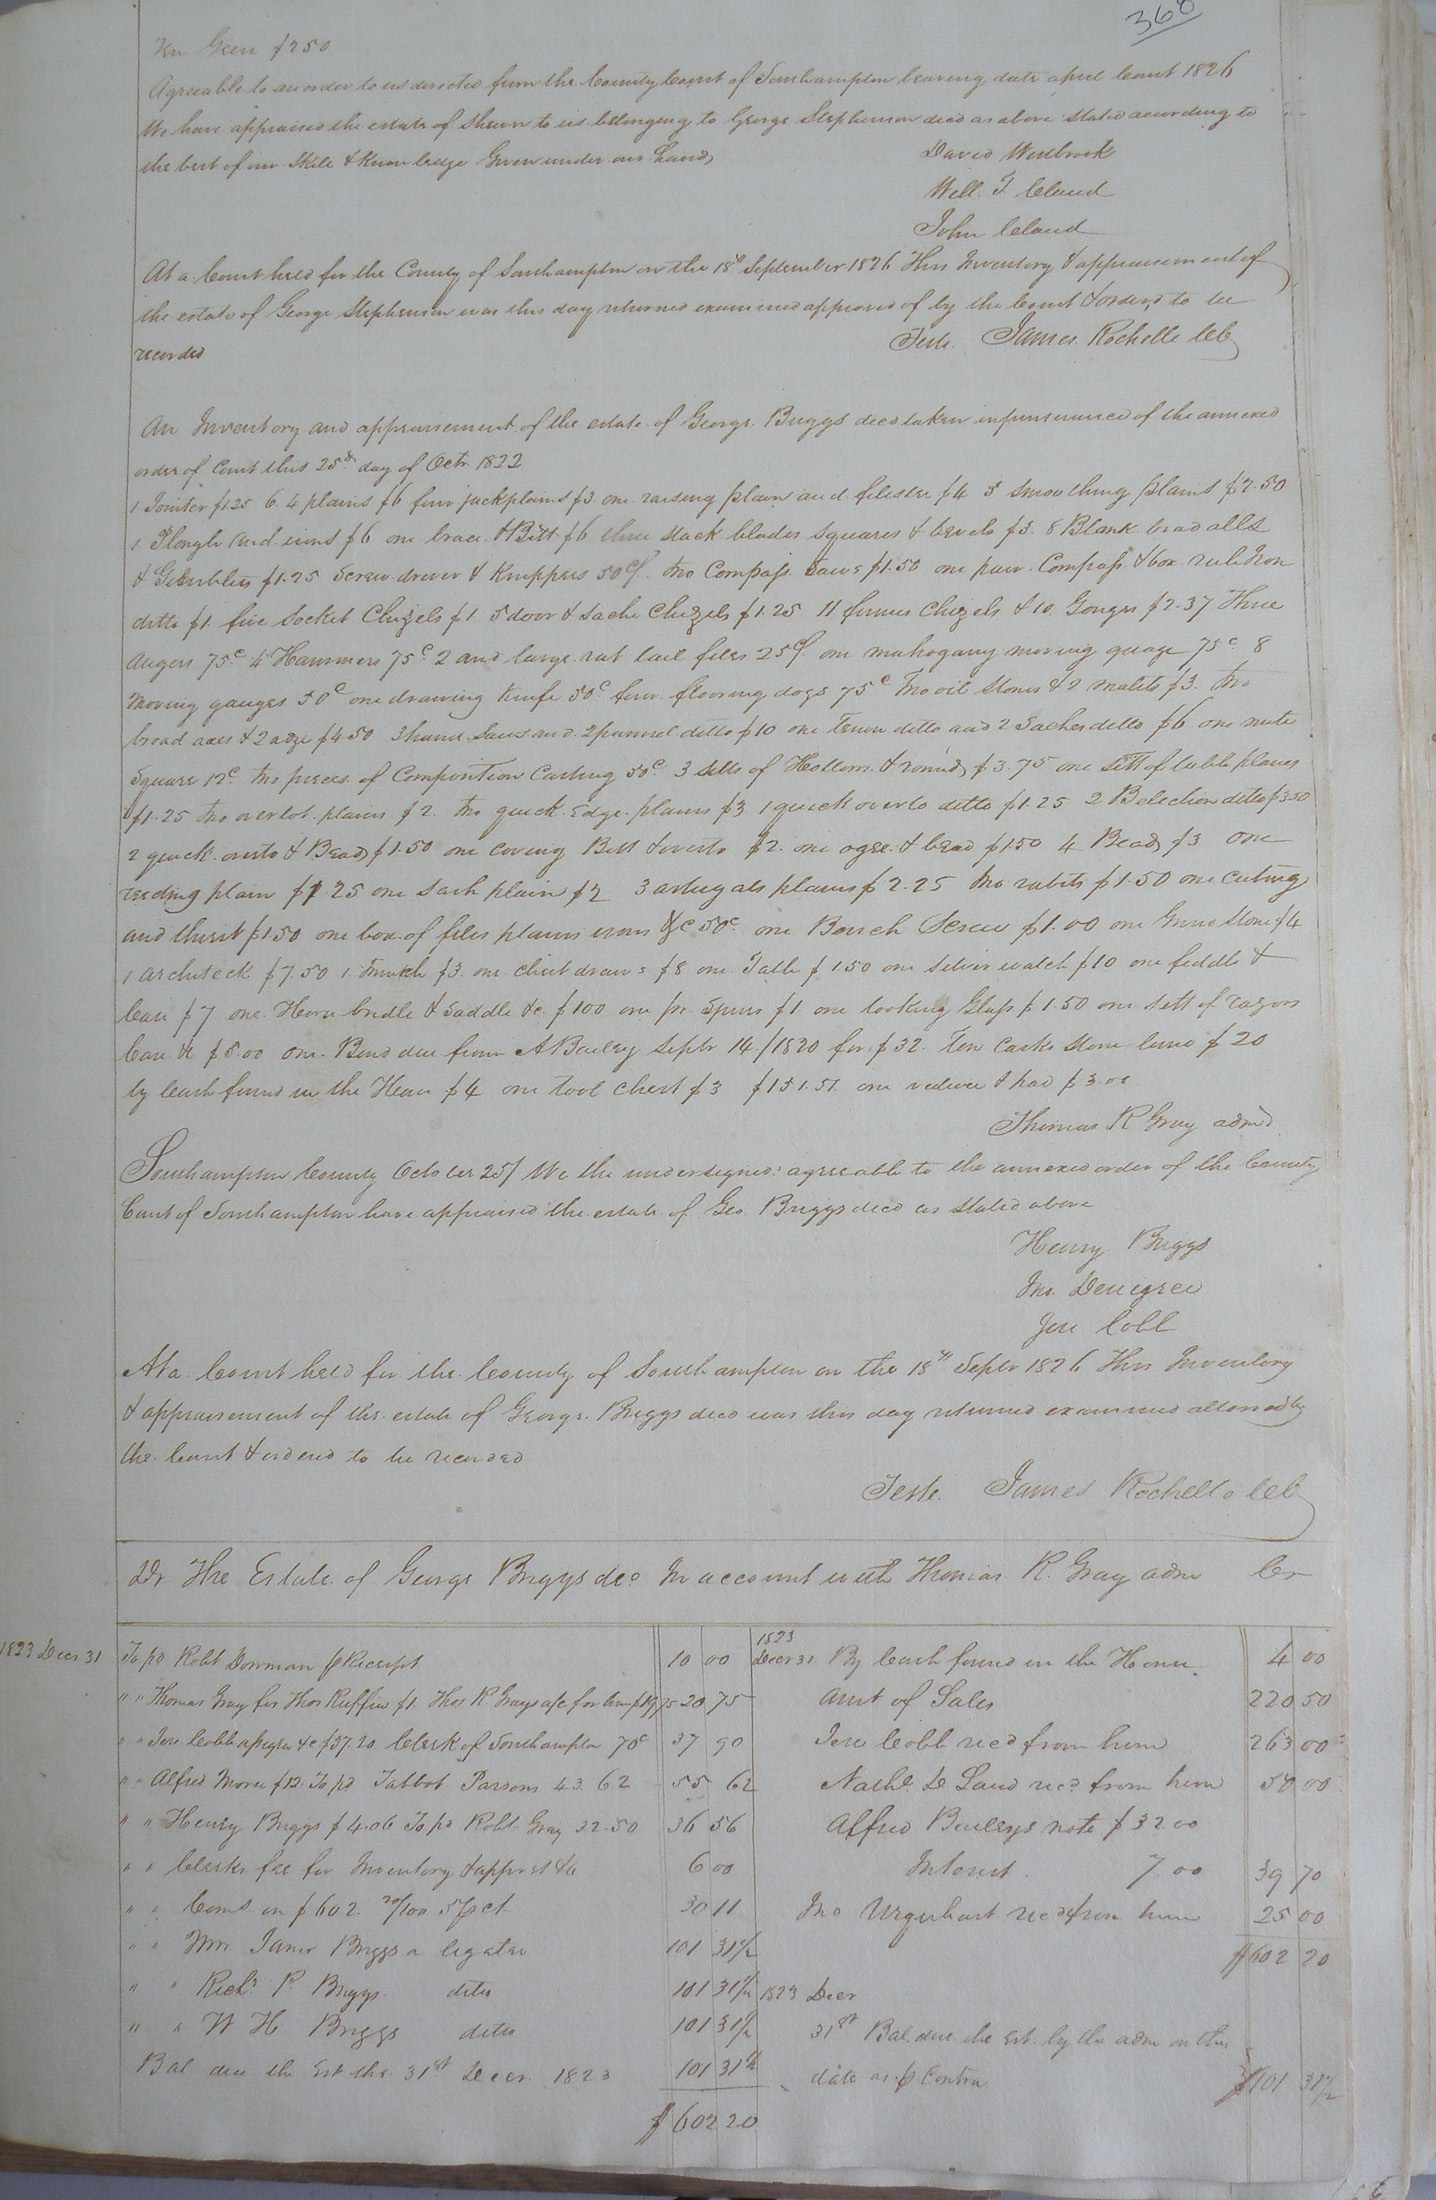 368
$250
Agreeable to an order to us directed from the County Court of Southampton bearing date april Court 1826
We have appraised the estate of shewn to us belonging to George Stephenson decd as above stated according to
the best of our Skill & Knowledge Given under our hands
David Westbrook
Will. T Claud
John Claud
At a Court held for the County of Southampton on the 18th September 1826 This Inventory & appraisement of
the estate of George Stephenson was this day returned examined approved of by the Court & Ordered to be
recorded
Teste. James Rochelle Clk
An Inventory and appraisement of the estate of George Briggs decd taken in pursuance of the annexed
order of Court this 25th day of Octr 1822
1 Jointer $1.25 6 4 plains $6 four jackplains $3 one raising plain and filester $4 5 smoothing plains $2.50
1 Plough and irons $6 one brace & Bitt $6 three stock blades squares & bevels $3. 8 Blank brad alls
& Gimblets $1.25 Screw driver & Knippers 50cts two Compass Saws $1.50 one pair Compass & box rule Iron
ditto $1. five Socket Chizels $1 5 door & Sache Chizels $1.25 11 firmer Chizels & 10 Gouges $2.37 Three
Augers 75c 4 Hammers 75c 2 and large rat tail files 25cts one mahogany moving guage 75c 8
moving gauges 50c one drawing Knife 50c four flooring dogs 75c Two oil Stones & 2 malits $3. two
broad axes & 2 adze $4.50 3 hand Saws and 2 pannel ditto $10 one Tenon ditto and 2 Saches ditto $6 one mitre
Square 12c two pieces of Composition Casting 50c 3 setts of Hollows & rounds $3.75 one Sett of table planes
$1.25 two overlot plains $2. two quick Edge plains $3 1 quick overto ditto $1.25 2 Belection ditto $3.50
2 quick overto & Beads $1.50 one coving Bitt & overto $2. one ogee & bead $1.50 4 Beads $3 one
reeding plain $1 25 one Sash plain $2 3 astugals plains $2.25 two rabits $1.50 one cuting
and thrist $1.50 one box of files plains irons &c 50c one Bench Screw $1.00 one Grind Stone $4
1 Architeck $7.50 1 trunk $3 one chist draws $8 one Table $1.50 one Silver watch $10 one feddle &
Case $7 one Horse bridle & Saddle &c. $100 one pr. Spurs $1. one looking Glass $1.50 one sett of razors
Case &c $5.00 one Bond due from A Bailey Septr 14/1820 for $32. Ten Casks Stone lime $20
by Cash found in the House $4 one tool chest $3 $151.51 one valice & pad $3.00
Thomas R Gray admr
Southampton County October 25/ We the undersigned agreeable to the annexed order of the County
Court of Southampton have appraised the estate of Geo. Briggs decd as stated above
Henry Briggs
Jno. Denegree
Jere Cobb
At a Court held for the County of Southampton on the 18th Septr 1826 This Inventory
& appraisement of the estate of George Briggs decd was this day returned examined allowed by
the Court & ordered to be recorded
Teste. James Rochelle Clk
Dr The Estate of George Briggs decd In account with Thomas R. Gray admr Cr
1823 Decr 31 To pd Robt Dorman p Receipt 10 00
" " Thomas Gray for Thos Ruffin $1. Thos R Grays a/c for him $19.75 20 75
" " Jere Cobb assgee &c $37.20 Clerk of Southampton 70c 37 90
" " Alfred Moore $12. To pd Talbot Parsons 43.62 55 62
" " Henry Briggs $4.06 To pd Robt Gray 32.50 36 56
" " Clerks fee for Inventory & apprst &c 6 00
" " Coms on $602. 20/100 5 p ct. 30 11
" " Mrs Janes Briggs a legatee 101 31½
" " Richd P Briggs ditto 101 31½
" " W H Briggs ditto 101 31½
Bal due the Est this 31st Decr. 1823 101 31½
$602 20
1823
Decr 31 By Cash found in the House 4 00
Amt of Sales 220 50
Jere Cobb recd from him 263 00
Nathl D Land recd from him 50 00
Alfred Baileys note $32.00
Interest. 7.00 39 70
Jno Urquhart recd from him 25 00
$602 20
1823 Decr
31st Bal due the Est. by the admr on this
date as p Contra $101 31½